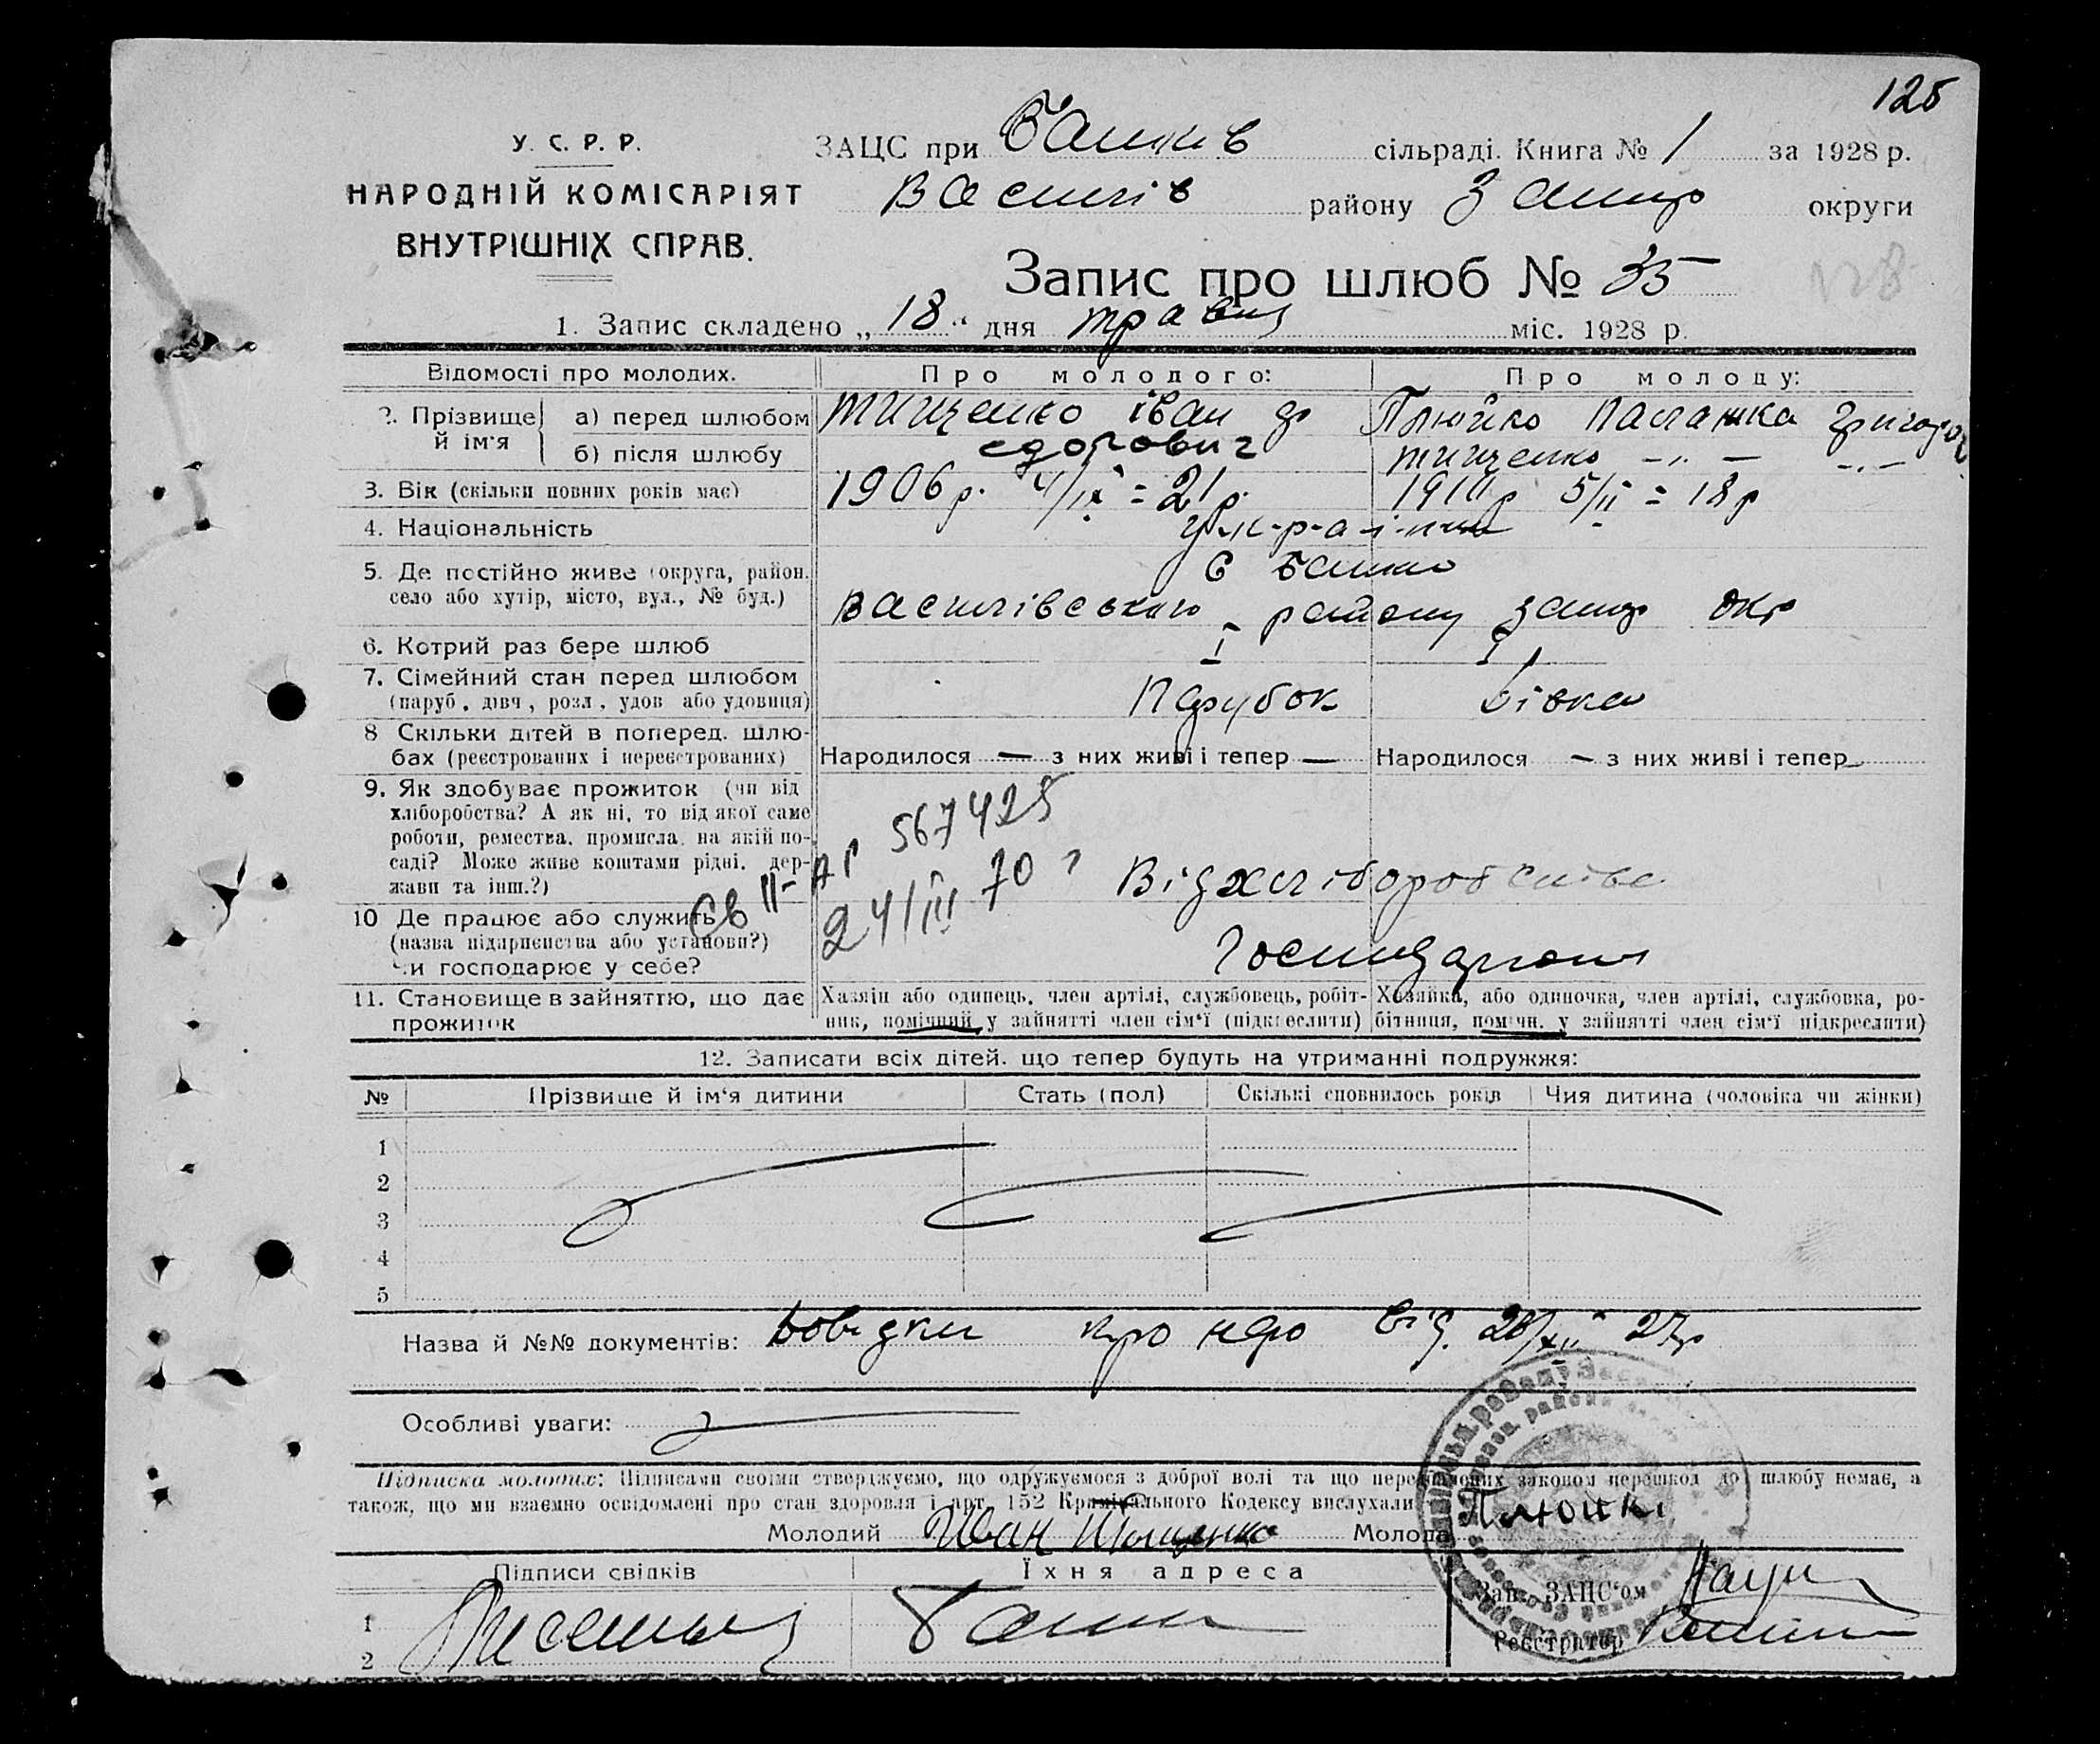 125
У. С. Р. Р.
НАРОДНІЙ КОМІСАРІЯТ
ВНУТРІШНІХ СПРАВ.
ЗАЦС при Балків сільраді. Книга № 1 за 1928 р.
Василів району Запор округи
Запис про шлюб № 35
128
1. Запис складено „18“ дня травня міс. 1928 р.
Відомості про молодих. Про молодого: Про молоду:
2. Прізвище й ім'я а) перед шлюбом Тищенко Іван Федорович Плюйко Палажка Григоров
б) після шлюбу Тищенко -„- -„-
3. Вік (скільки повних років має) 1906 р. 4/ІХ = 21 р. 1910 р 5/ІІ = 18 р
4. Національність у-к-р-а-ї-н-ці
5. Де постійно живе (округа, район, село або хутір, місто, вул., № буд.) С Балки
Василівського району Запор окр
6. Котрий раз бере шлюб І І
7. Сімейний стан перед шлюбом (паруб., дівч., розл., удов. або удовиця) Парубок Дівка
8 Скільки дітей в поперед. шлюбах (реєстрованих і нереєстрованих) Народилося — з них живі і тепер — Народилося — з них живі і тепер —
9. Як здобуває прожиток (чи від хліборобства? А як ні, то від якої саме роботи, ремества, промисла, на якій посаді? Може живе коштами рідні, держави та інш.?) Від хліборобства
Св ІІ-АП 567425
24/ІІІ 70 г
10 Де працює або служить (назва підприємства або установи?) Чи господарює у себе?
11. Становище в зайняттю, що дає прожиток Хазяїн або одинець, член артілі, службовець, робітник, помічний у зайнятті член сім'ї (підкреслити) Хазяйка, або одиночка, член артілі, службовка, робітниця, помічн. у зайнятті член сім'ї підкреслити)
12. Записати всіх дітей, що тепер будуть на утриманні подружжя:
№ Прізвище й ім'я дитини Стать (пол) Скількі сповнилось років Чия дитина (чоловіка чи жінки)
1
2
3
4
5
Назва й №№ документів: Довідки про нар від. 28/ХІІ 27 р
Особливі уваги:
Підписка молодих: Підписами своїми стверджуємо, що одружуємося з доброї волі та що передбачених законом перешкод до шлюбу немає, а
також, що ми взаємно освідомлені про стан здоровля і арт. 152 Кримінального Кодексу вислухали
Молодий Иван Тищенко Молода Плюйко
Підписи свідків Їхня адреса
1 Балки
2
Зав. ЗАЦС'ом
Реєстратор